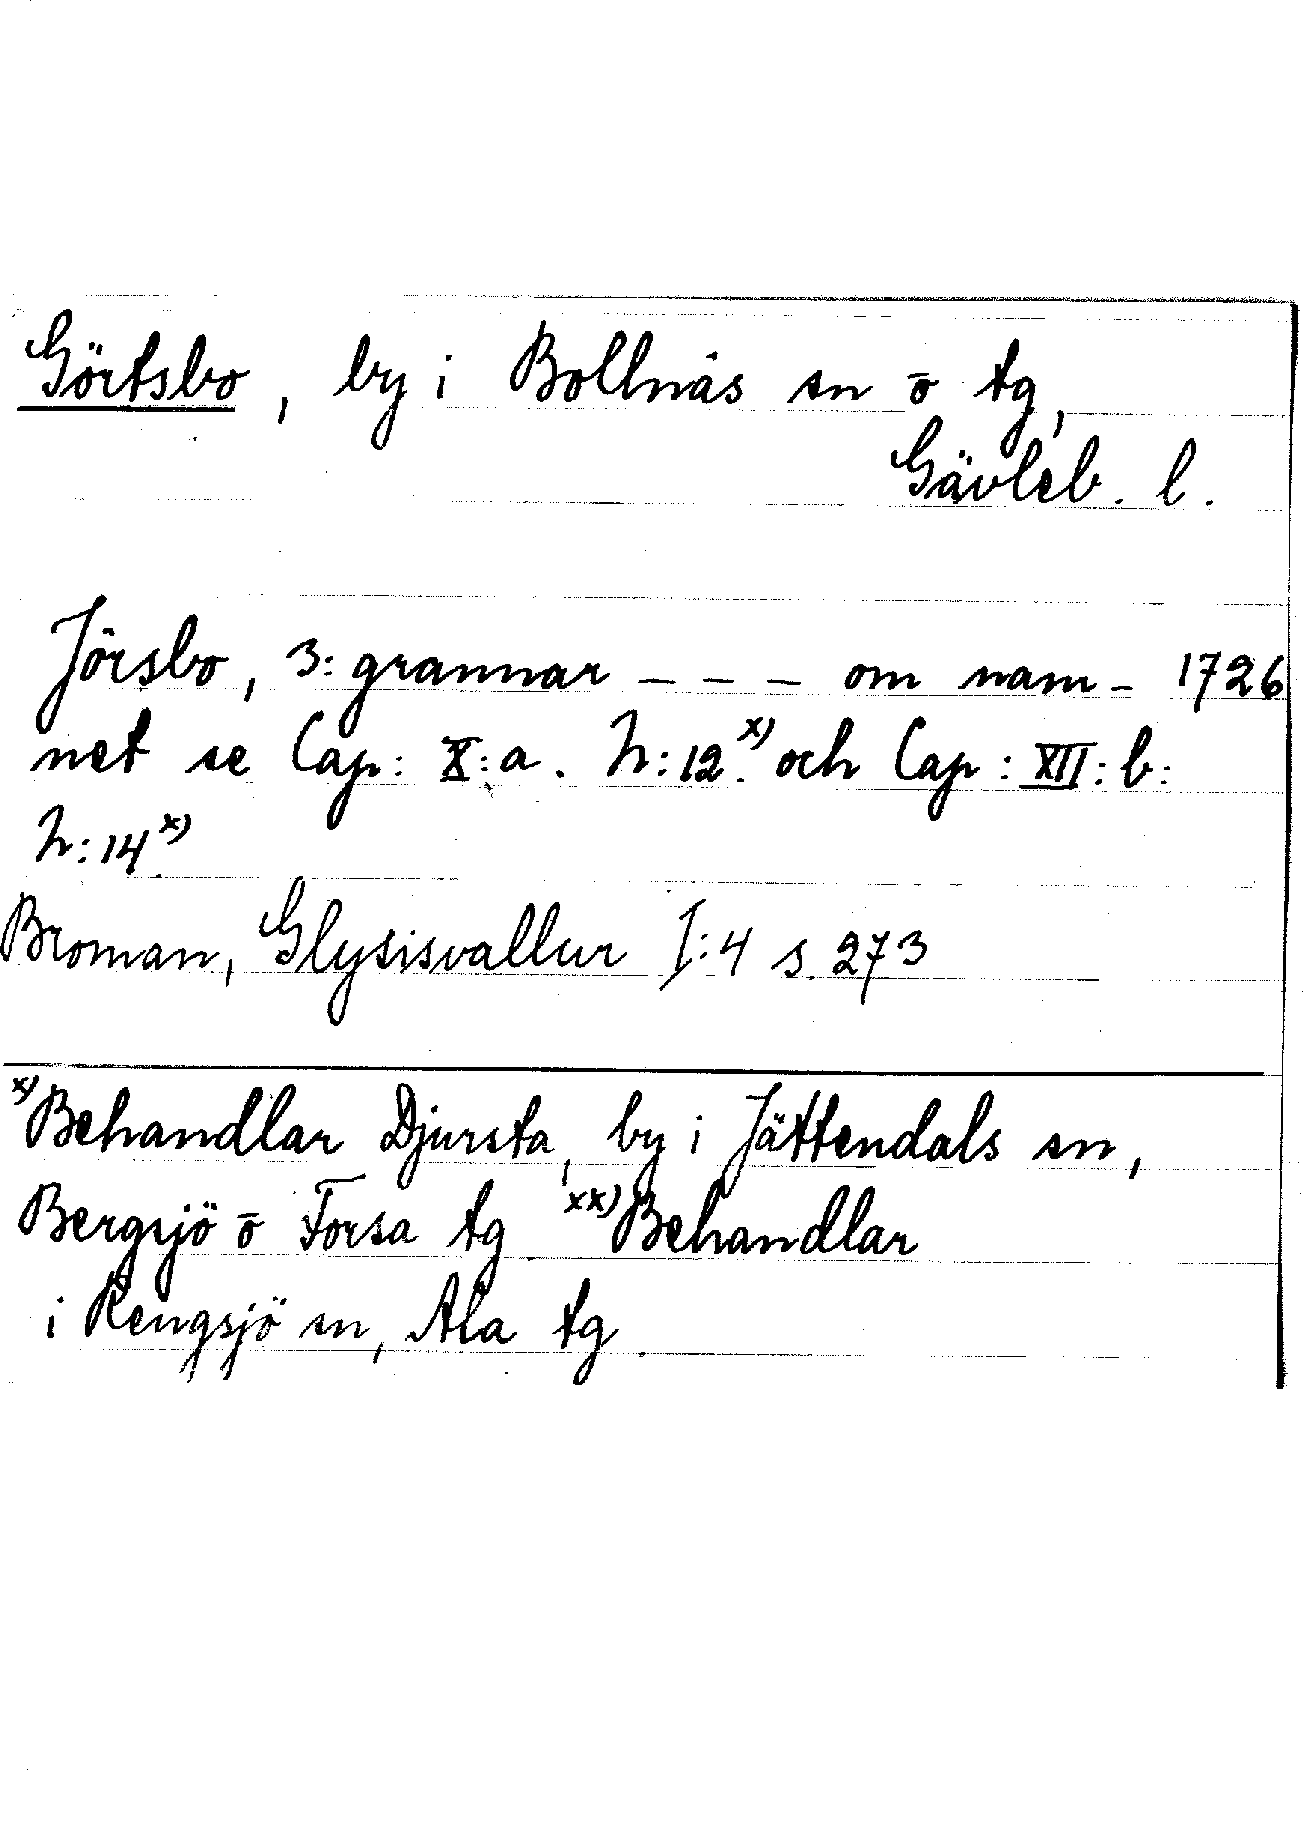 Görtsbo, by i Bollnäs sn o tg,
Gävleb. l.
Jörsbo, 3: grannar – – – om nam- 1726
net se Cap: X: a. N: 12.x) och Cap: XII: b:
N: 14x)
Broman, Glysisvallur I:4 s. 273
x) Behandlar Djursta, by i Jättendals sn,
Bergsjö o Forsa tg xx) Behandlar
i Rengsjö sn, Ala tg